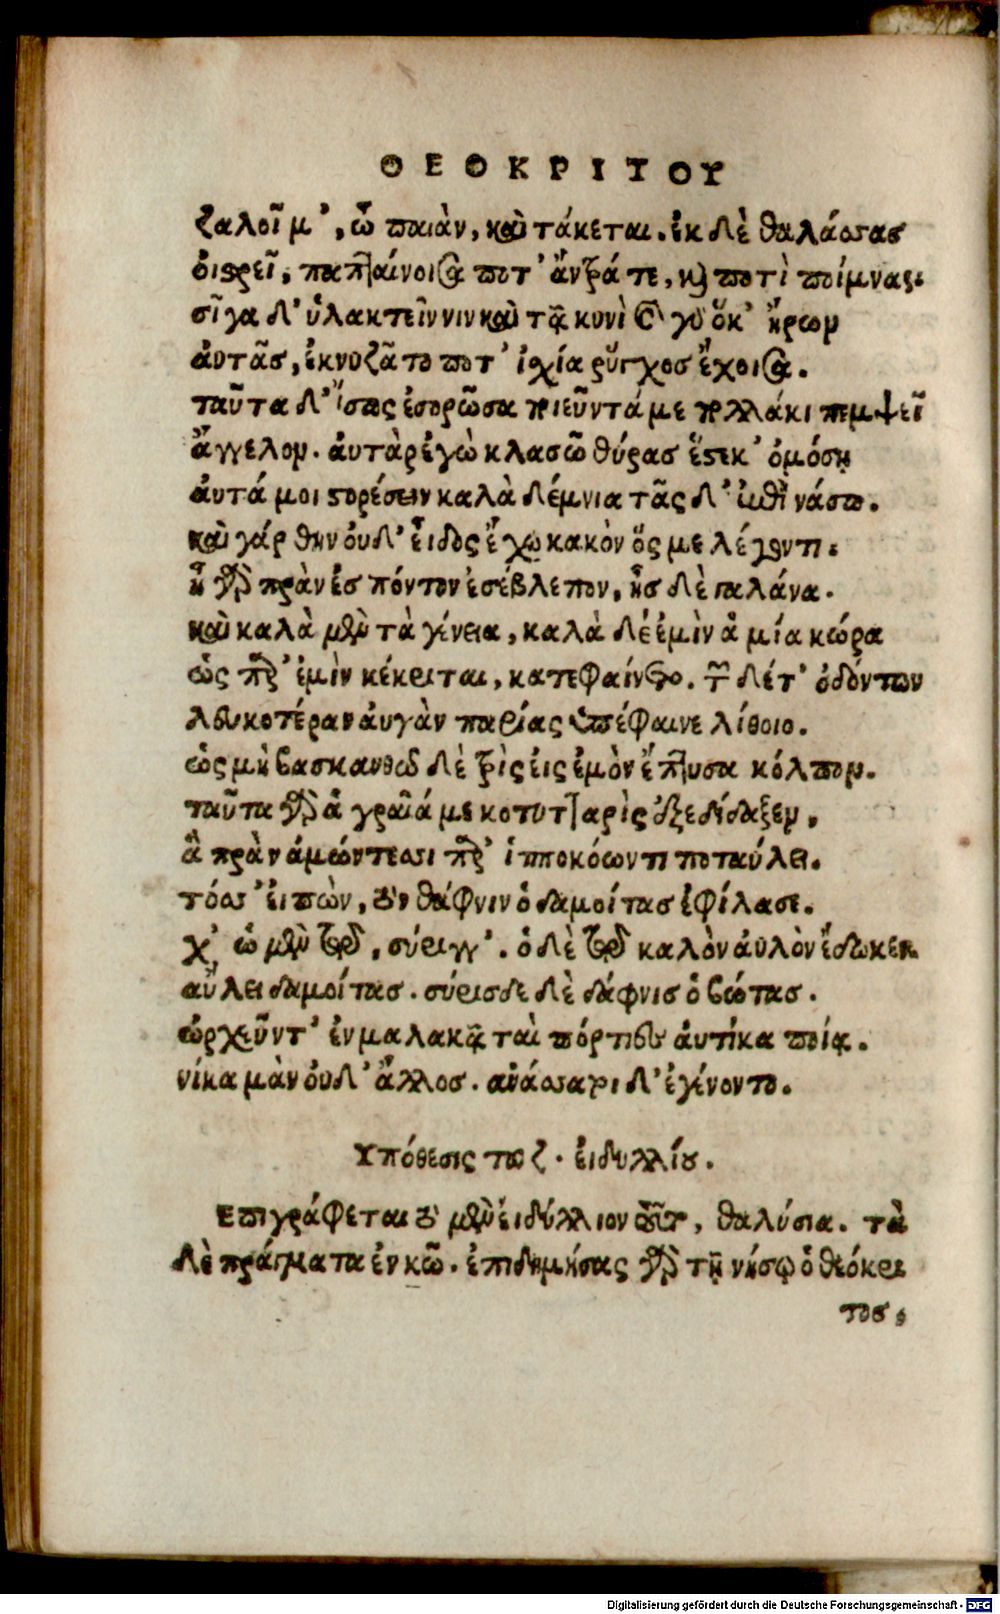 ΘΕΟΚΡΙΤΟΥ
ζαλοῖ μ', ὦ παιὰν, καὶ τάκεται. ἐκ δὲ θαλάσσας
οἰστρεῖ, παπταίνοισα ποτ' ἄντρά τε, καὶ ποτὶ ποίμνας.
σῖγα δ' ὑλακτεῖν νιν καὶ τᾷ κυνὶ καὶ γὸ ὅκ' ἤρων
ἀυτᾶς, ἐκνυζᾶτο ποτ' ἰσχία ῥύγχος ἔχοισα.
ταῦτα δ' ἴσως ἐσορῶσα ποιεῦντά με πολλάκι πεμψεῖ
ἄγγελον. ἀυτὰρ ἐγὼ κλασῶ θύρας ἔστε κ' ὀμόσῃ
ἀυτά μοι στορέσειν καλὰ δέμνια τᾶς δ' ἐπὶ νάσω.
καὶ γάρ θην ὀυδ' εἶδος ἔχω κακὸν ὅς με λέγοντι.
ἦ γὰρ πρὰν ἐς πόντον ἐσέβλεπον, ἦς δὲ γαλάνα.
καὶ καλὰ μὲν τὰ γένεια, καλὰ δέ ἐμὶν ἁ μία κώρα
ὡς παρ' ἐμὶν κέκριται, κατεφαίνετο. τῶν δέ τ' ὀδόντων
λευκοτέραν ἀυγὰν παρίας ὑπέφαινε λίθοιο.
ὡς μὴ βασκανθῶ δὲ τρὶς εἰς ἐμὸν ἔπτυσα κόλπον.
ταῦτα γὰρ ἁ γραῖά με κοτυτταρὶς ἐξεδίδαξεν,
ἃ πρὰν ἀμώντεσσι παρ' ἱπποκόωντι ποταύλει.
τόσσ' εἰπὼν, τὸν δάφνιν ὁ δαμοίτας ἐφίλασε.
χ' ὡ μὲν τῷ, σύριγγ'. ὁ δὲ τῷ καλὸν ἀυλὸν ἔδωκεν.
αὔλει δαμοίτας. σύρισδε δὲ δάφνις ὁ βώτας.
ὠρχεῦντ' ἐν μαλακᾷ ταὶ πόρτιες ἀυτίκα ποίᾳ.
νίκα μὰν ὀυδ' ἄλλος. ἀνάσσατοι δ' ἐγένοντο.
Υπόθεσις τοῦ ζ. εἰδυλλίου.
Επιγράφεται τὸ μὲν εἰδύλλιον τοῦτο, θαλύσια. τὰ
δὲ πράγματα ἐν κῶ. ἐπιδημήσας γὰρ τῇ νήσῳ ὁ θεόκρι
τος,
Digitalisierung gefördert durch die Deutsche Forschungsgemeinschaft - DFG